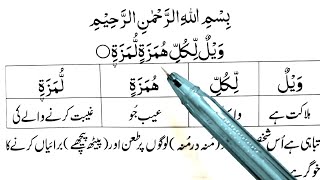 بِسْمِ اللهِ الرَّحْمٰنِ الرَّحِيْمِ
وَيْلٌ لِّكُلِّ هُمَزَةٍ لُّمَزَةِ
وَيْلٌ لِّكُلِّ هُمَزَةٍ لُّمَزَةِ
ہلاکت ہے عیب جُو غیبت کرنے والے کی
تباہی ہے اُس شخص مُنہ درمُنہ) لوگوں پر طعن اور (پیٹھ پیچھے) برائیاں کرنے کا
خوگر ہے